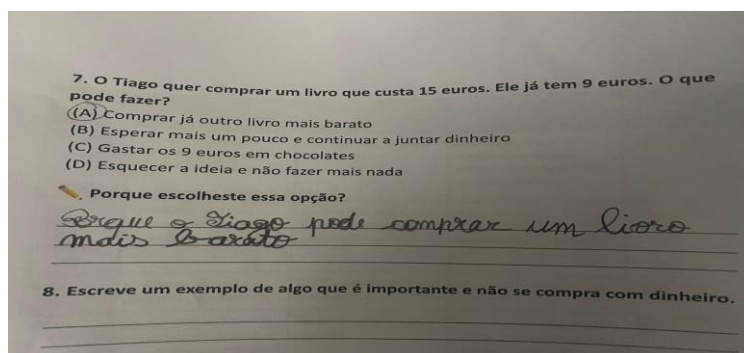 7. O Tiago quer comprar um livro que custa 15 euros. Ele já tem 9 euros. O que
pode fazer?
(A) Comprar já outro livro mais barato
(B) Esperar mais um pouco e continuar a juntar dinheiro
(C) Gastar os 9 euros em chocolates
(D) Esquecer a ideia e não fazer mais nada
Porque escolheste essa opção?
Porque o Tiago pode comprar um livro
mais barato
8. Escreve um exemplo de algo que é importante e não se compra com dinheiro.